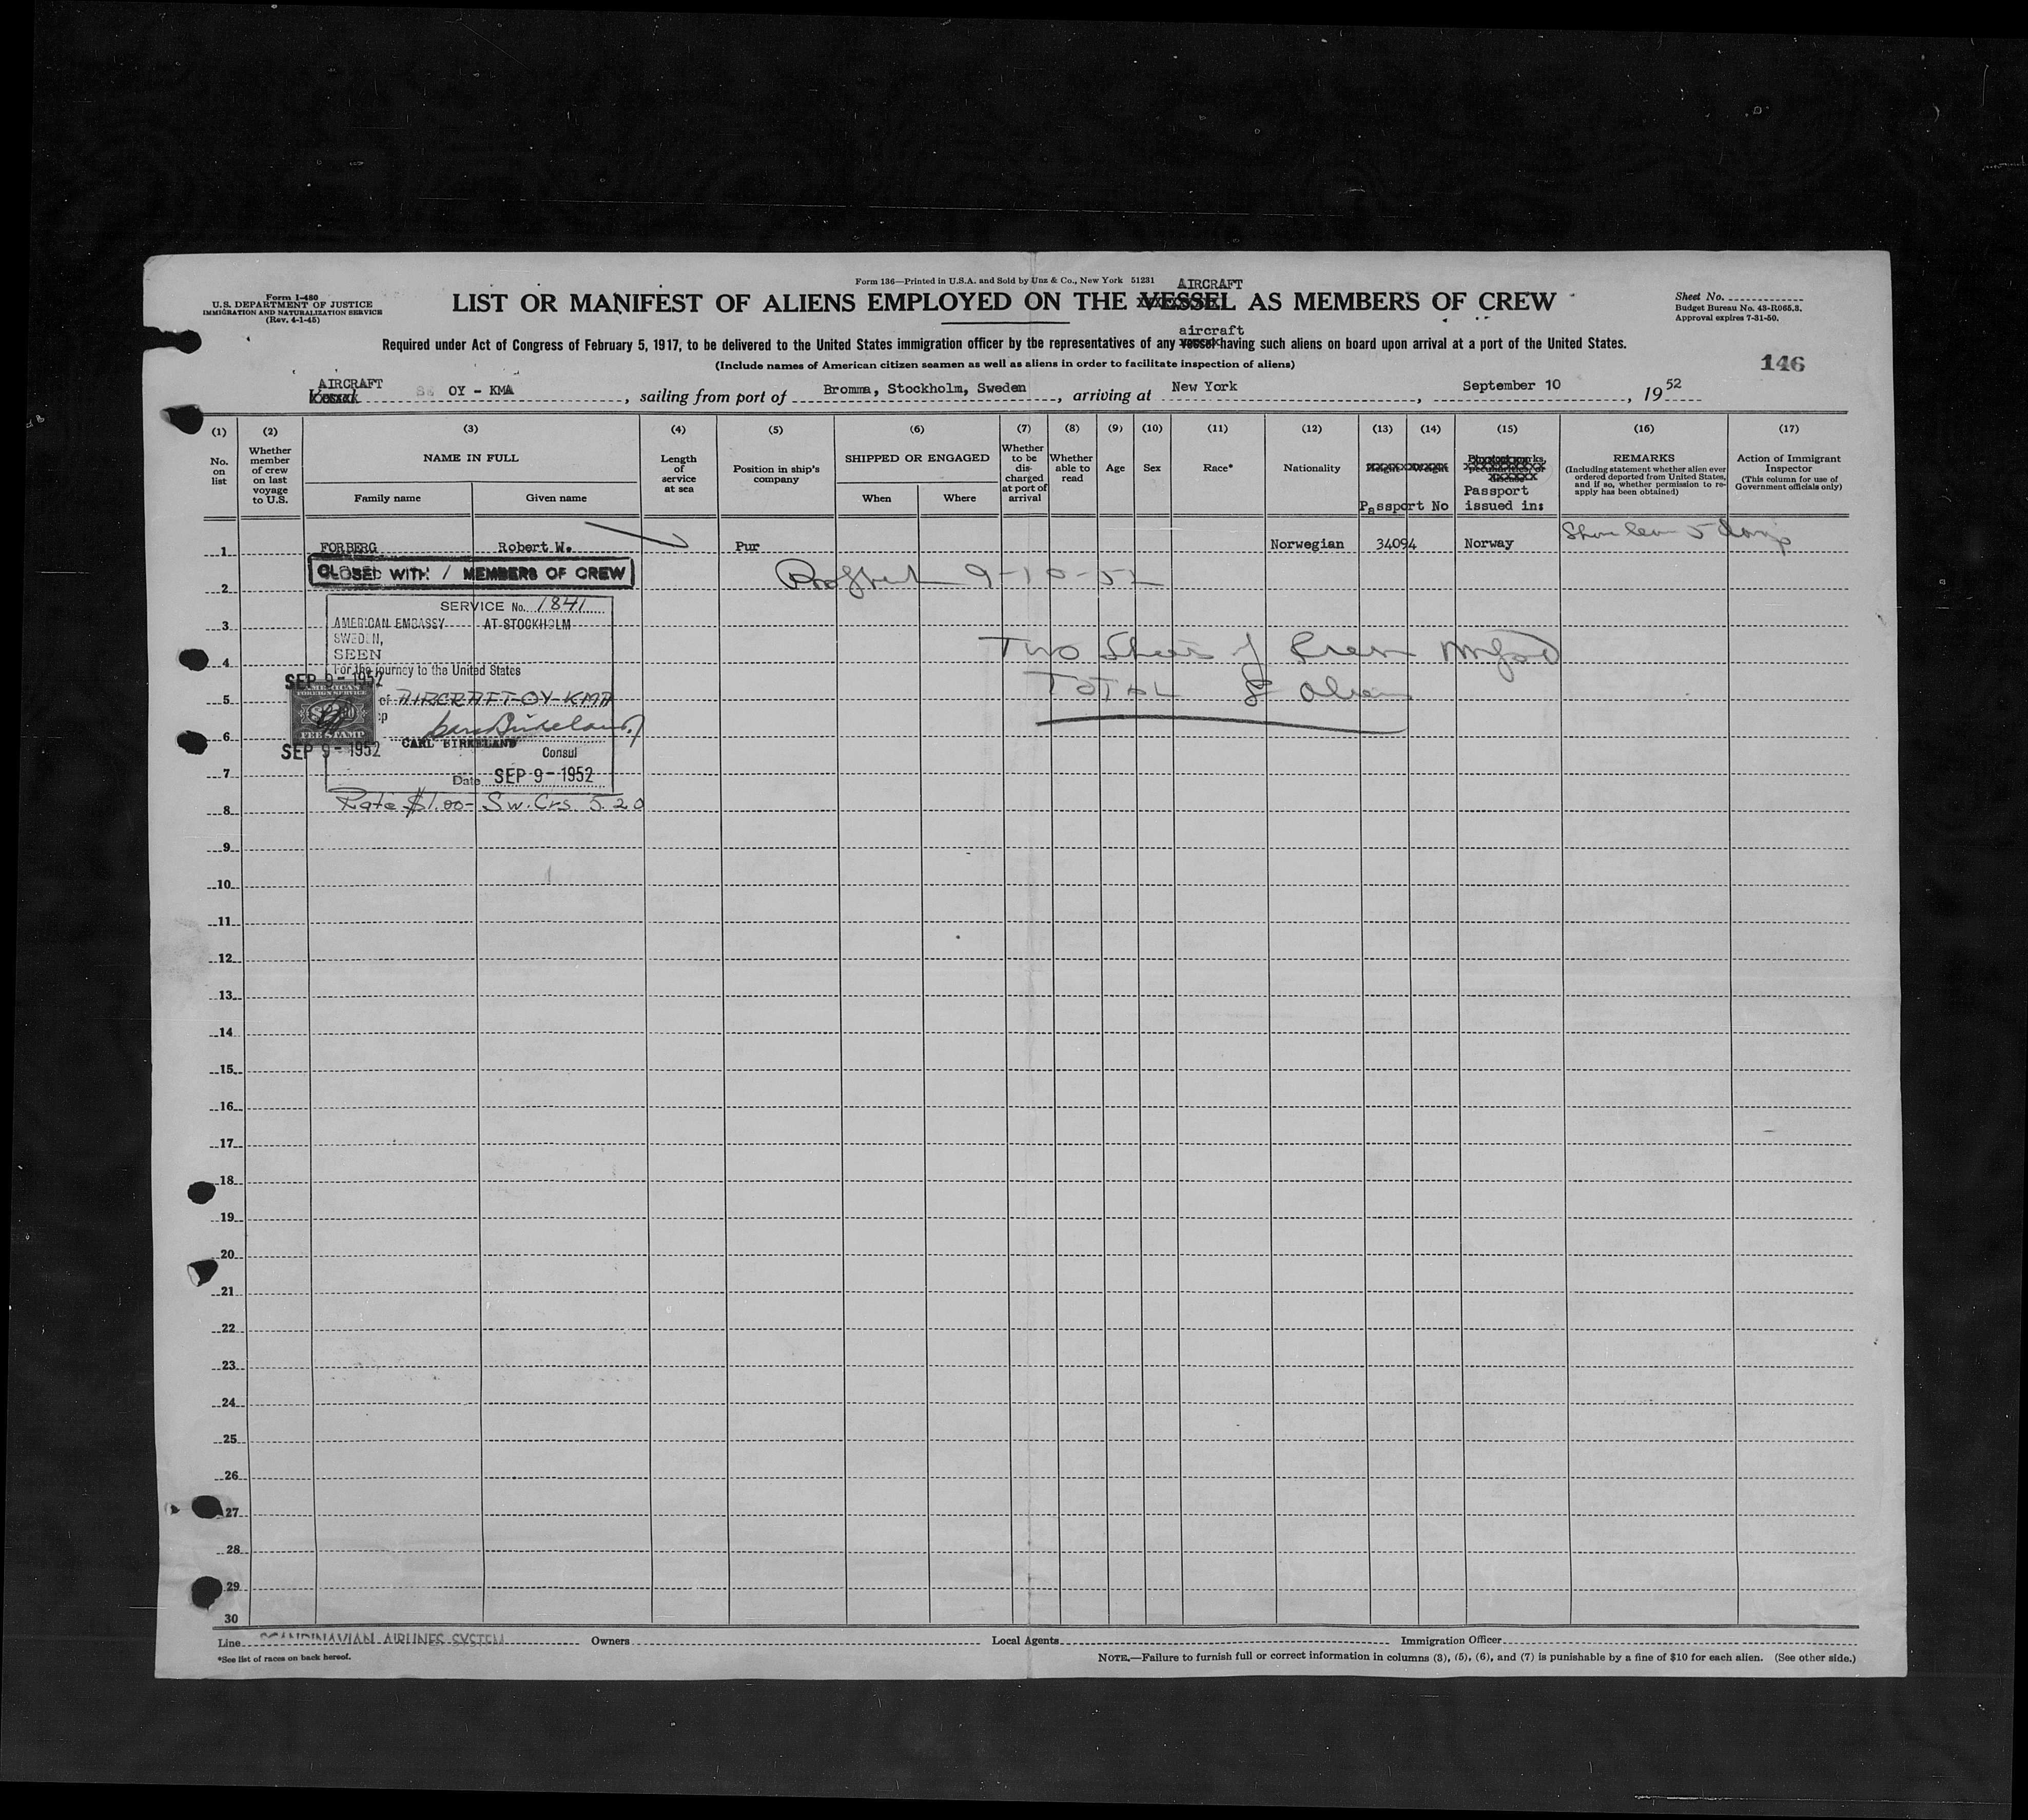 Form 136—Printed in U.S.A. and Sold by Unz & Co., New York 51231
Form I-480
U.S. DEPARTMENT OF JUSTICE
IMMIGRATION AND NATURALIZATION SERVICE
(Rev. 4-1-45)
AIRCRAFT
LIST OR MANIFEST OF ALIENS EMPLOYED ON THE VESSEL AS MEMBERS OF CREW
Sheet No.
Budget Bureau No. 43-R065.3.
Approval expires 7-31-50.
aircraft
Required under Act of Congress of February 5, 1917, to be delivered to the United States immigration officer by the representatives of any vessel having such aliens on board upon arrival at a port of the United States.
(Include names of American citizen seamen as well as aliens in order to facilitate inspection of aliens)
146
AIRCRAFT
Vessel OY - KMA , sailing from port of Bromma, Stockholm, Sweden , arriving at New York , September 10 , 19 52
(1) (2) (3) (4) (5) (6) (7) (8) (9) (10) (11) (12) (13) (14) (15) (16) (17)
No. on list
Whether member of crew on last voyage to U.S.
NAME IN FULL
Family name
Given name
Length of service at sea
Position in ship's company
SHIPPED OR ENGAGED
When
Where
Whether to be discharged at port of arrival
Whether able to read
Age
Sex
Race*
Nationality
Passport No
Physical marks, peculiarities, or disease
Passport issued in:
REMARKS
(Including statement whether alien ever ordered deported from United States, and if so, whether permission to reapply has been obtained)
Action of Immigrant Inspector
(This column for use of Government officials only)
1 FORBERG Robert W. Pur Norwegian 34094 Norway
CLOSED WITH 1 MEMBERS OF CREW
2
9-10-52
SERVICE No. 1841
3
AMERICAN EMBASSY AT STOCKHOLM
SWEDEN,
SEEN
4
Two Sheets of Crew
For the journey to the United States
SEP 9-1952
5
TOTAL 8 Aliens
AMERICAN
FOREIGN SERVICE
FEE STAMP
of AIRCRAFT OY KMA
6
CARL BIRKELAND
Consul
SEP 9-1952
7
Date SEP 9-1952
Rate $1.00- Sw. Crs. 5.20
8
9
10
11
12
13
14
15
16
17
18
19
20
21
22
23
24
25
26
27
28
29
30
Line SCANDINAVIAN AIRLINES SYSTEM Owners Local Agents Immigration Officer
*See list of races on back hereof.
NOTE.—Failure to furnish full or correct information in columns (3), (5), (6), and (7) is punishable by a fine of $10 for each alien. (See other side.)